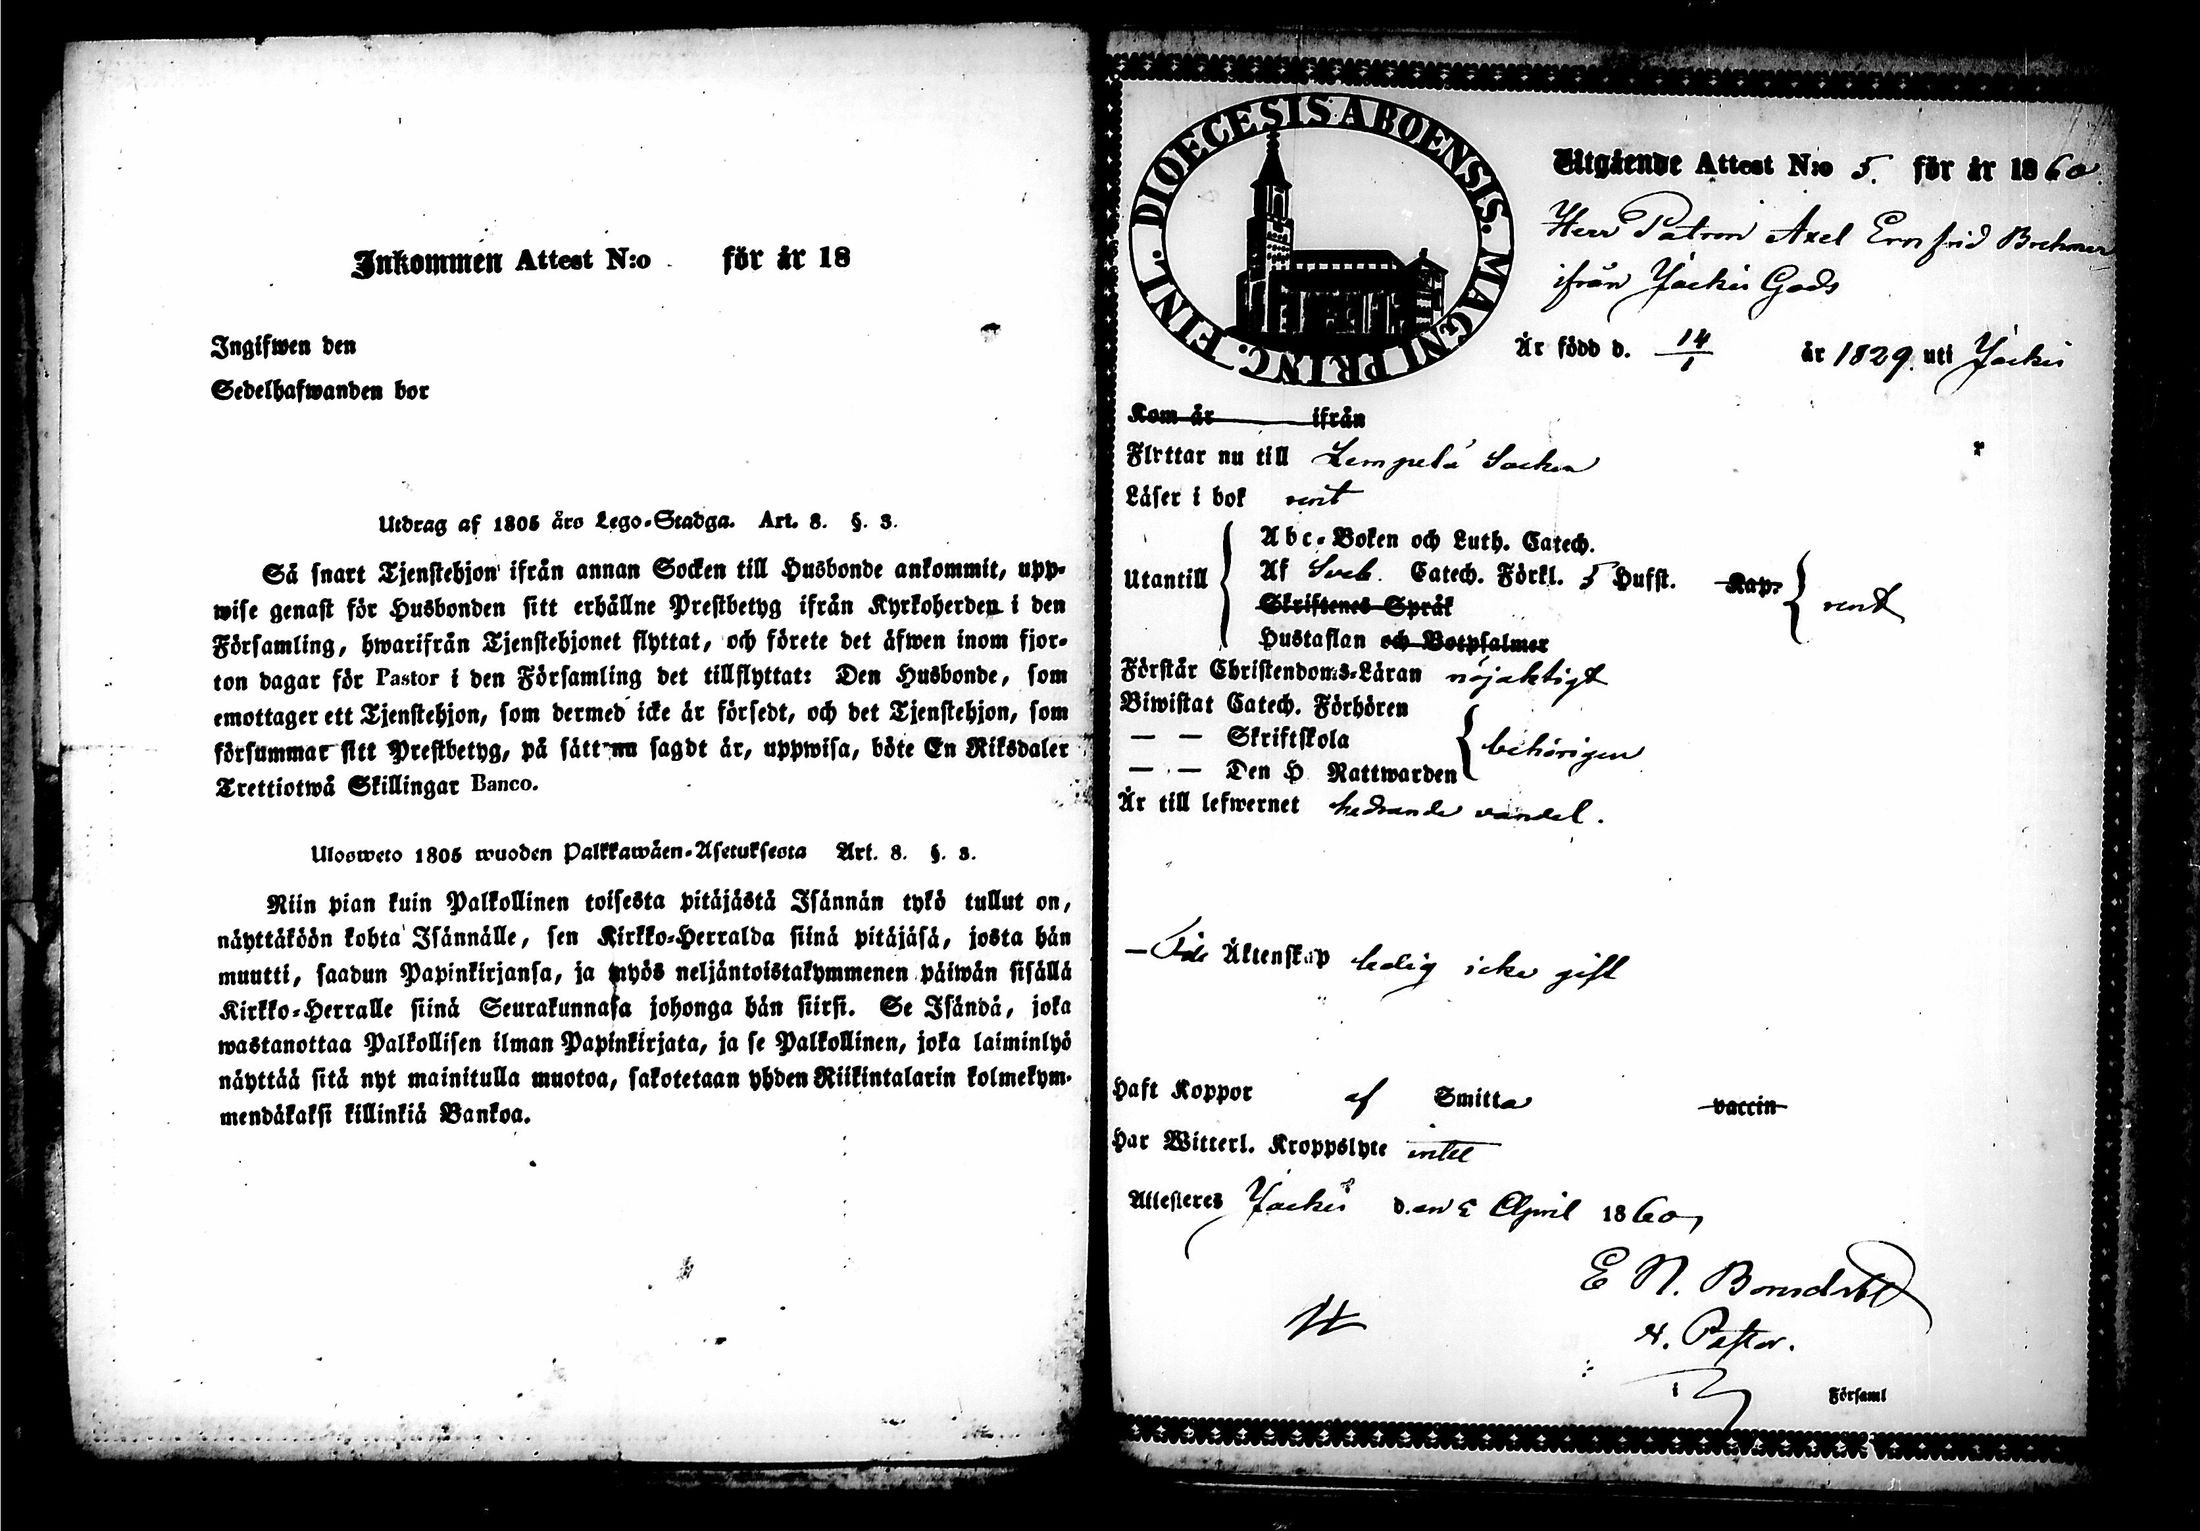 Inkommen Attest N:o för år 18
Ingifwen den
Sedelhafwanden bor
Utdrag af 1805 års Lego-Stadga. Art. 8. §. 3.
Så snart Tjenstehjon ifrån annan Socken till Husbonde ankommit, upp-
wise genast för Husbonden sitt erhållne Prestbetyg ifrån Kyrkoherden i den
Församling, hwarifrån Tjenstehjonet flyttat, och förete det äfwen inom fjor-
ton dagar för Pastor i den Församling det tillflyttat: Den Husbonde, som
emottager ett Tjenstehjon, som dermed icke är försedt, och det Tjenstehjon, som
försummar sitt Prestbetyg, på sätt nu sagdt är, uppwisa, böte En Riksdaler
Trettiotwå Skillingar Banco.
Ulosweto 1805 wuoden Palkkawäen-Asetuksesta Art. 8. §. 3.
Niin pian kuin Palkollinen toisesta pitäjästä Isännän tykö tullut on,
näyttäköön kohta Isännälle, sen Kirkko-Herralda siinä pitäjäsä, josta hän
muutti, saadun Papinkirjansa, ja myös neljäntoistakymmenen päiwän sisällä
Kirkko-Herralle siinä Seurakunnasa johonga hän siirsi. Se Isändä, joka
wastanottaa Palkollisen ilman Papinkirjata, ja se Palkollinen, joka laiminlyö
näyttää sitä nyt mainitulla muotoa, sakotetaan yhden Riikintalarin kolmekym-
mendäkaksi killinkiä Bankoa.
DIOECESIS ABOENSIS. MAGNI PRINC. FINL.
Utgående Attest N:o 5. för år 1860.
Herr Patron Axel Ernfrid Brehmer
ifrån Jockis Gods
Är född d. 14/1 år 1829. uti Jockis
Kom år ifrån
Flyttar nu till Lempelä Socken
Läser i bok rent
Abc-Boken och Luth. Catech.
Utantill Af Sveb. Catech. Förkl. 5 Hufst. Kap. rent
Skriftenes Språk
Hustaflan och Botpsalmer
Förstår Christendoms-Läran nöjaktigt
Biwistat Catech. Förhören
— — Skriftskola behörigen
— — Den H Nattwarden
Är till lefwernet hedrande vandel.
Äktenskap ledig icke gift
Haft Koppor af Smitta vaccin
Har Witterl. Kroppslyte intet
Attesteres Jockis den 5 April 1860,
E N.
Pastor.
i Församl